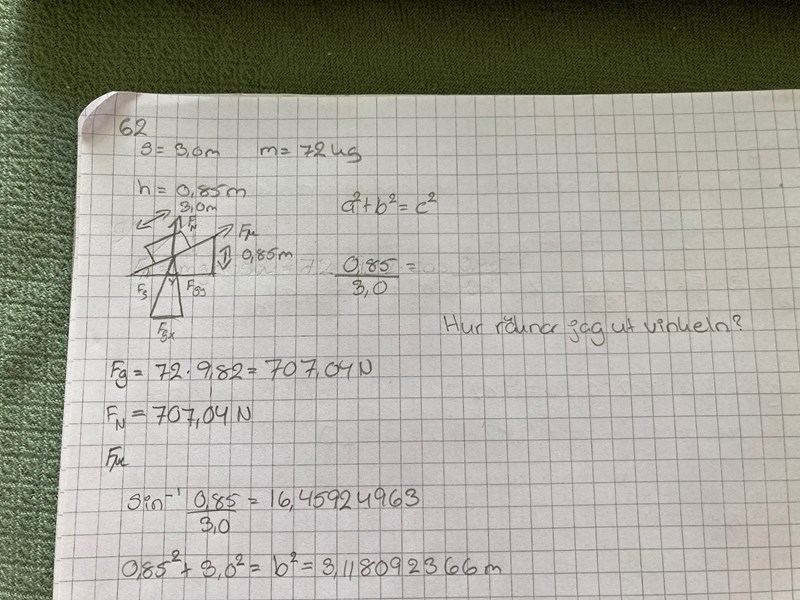 62
s = 3,0m m = 72 kg
h = 0,85m
a²+b²=c²
3,0m
F_N
Fμ
0,85m
0,85 =
3,0
Fg
Fgy
Fgx
Hur räknar jag ut vinkeln?
Fg = 72 · 9,82 = 707,04 N
F_N = 707,04 N
Fμ
Sin⁻¹ 0,85 = 16,45924963
3,0
0,85² + 3,0² = b² = 3,118092366 m